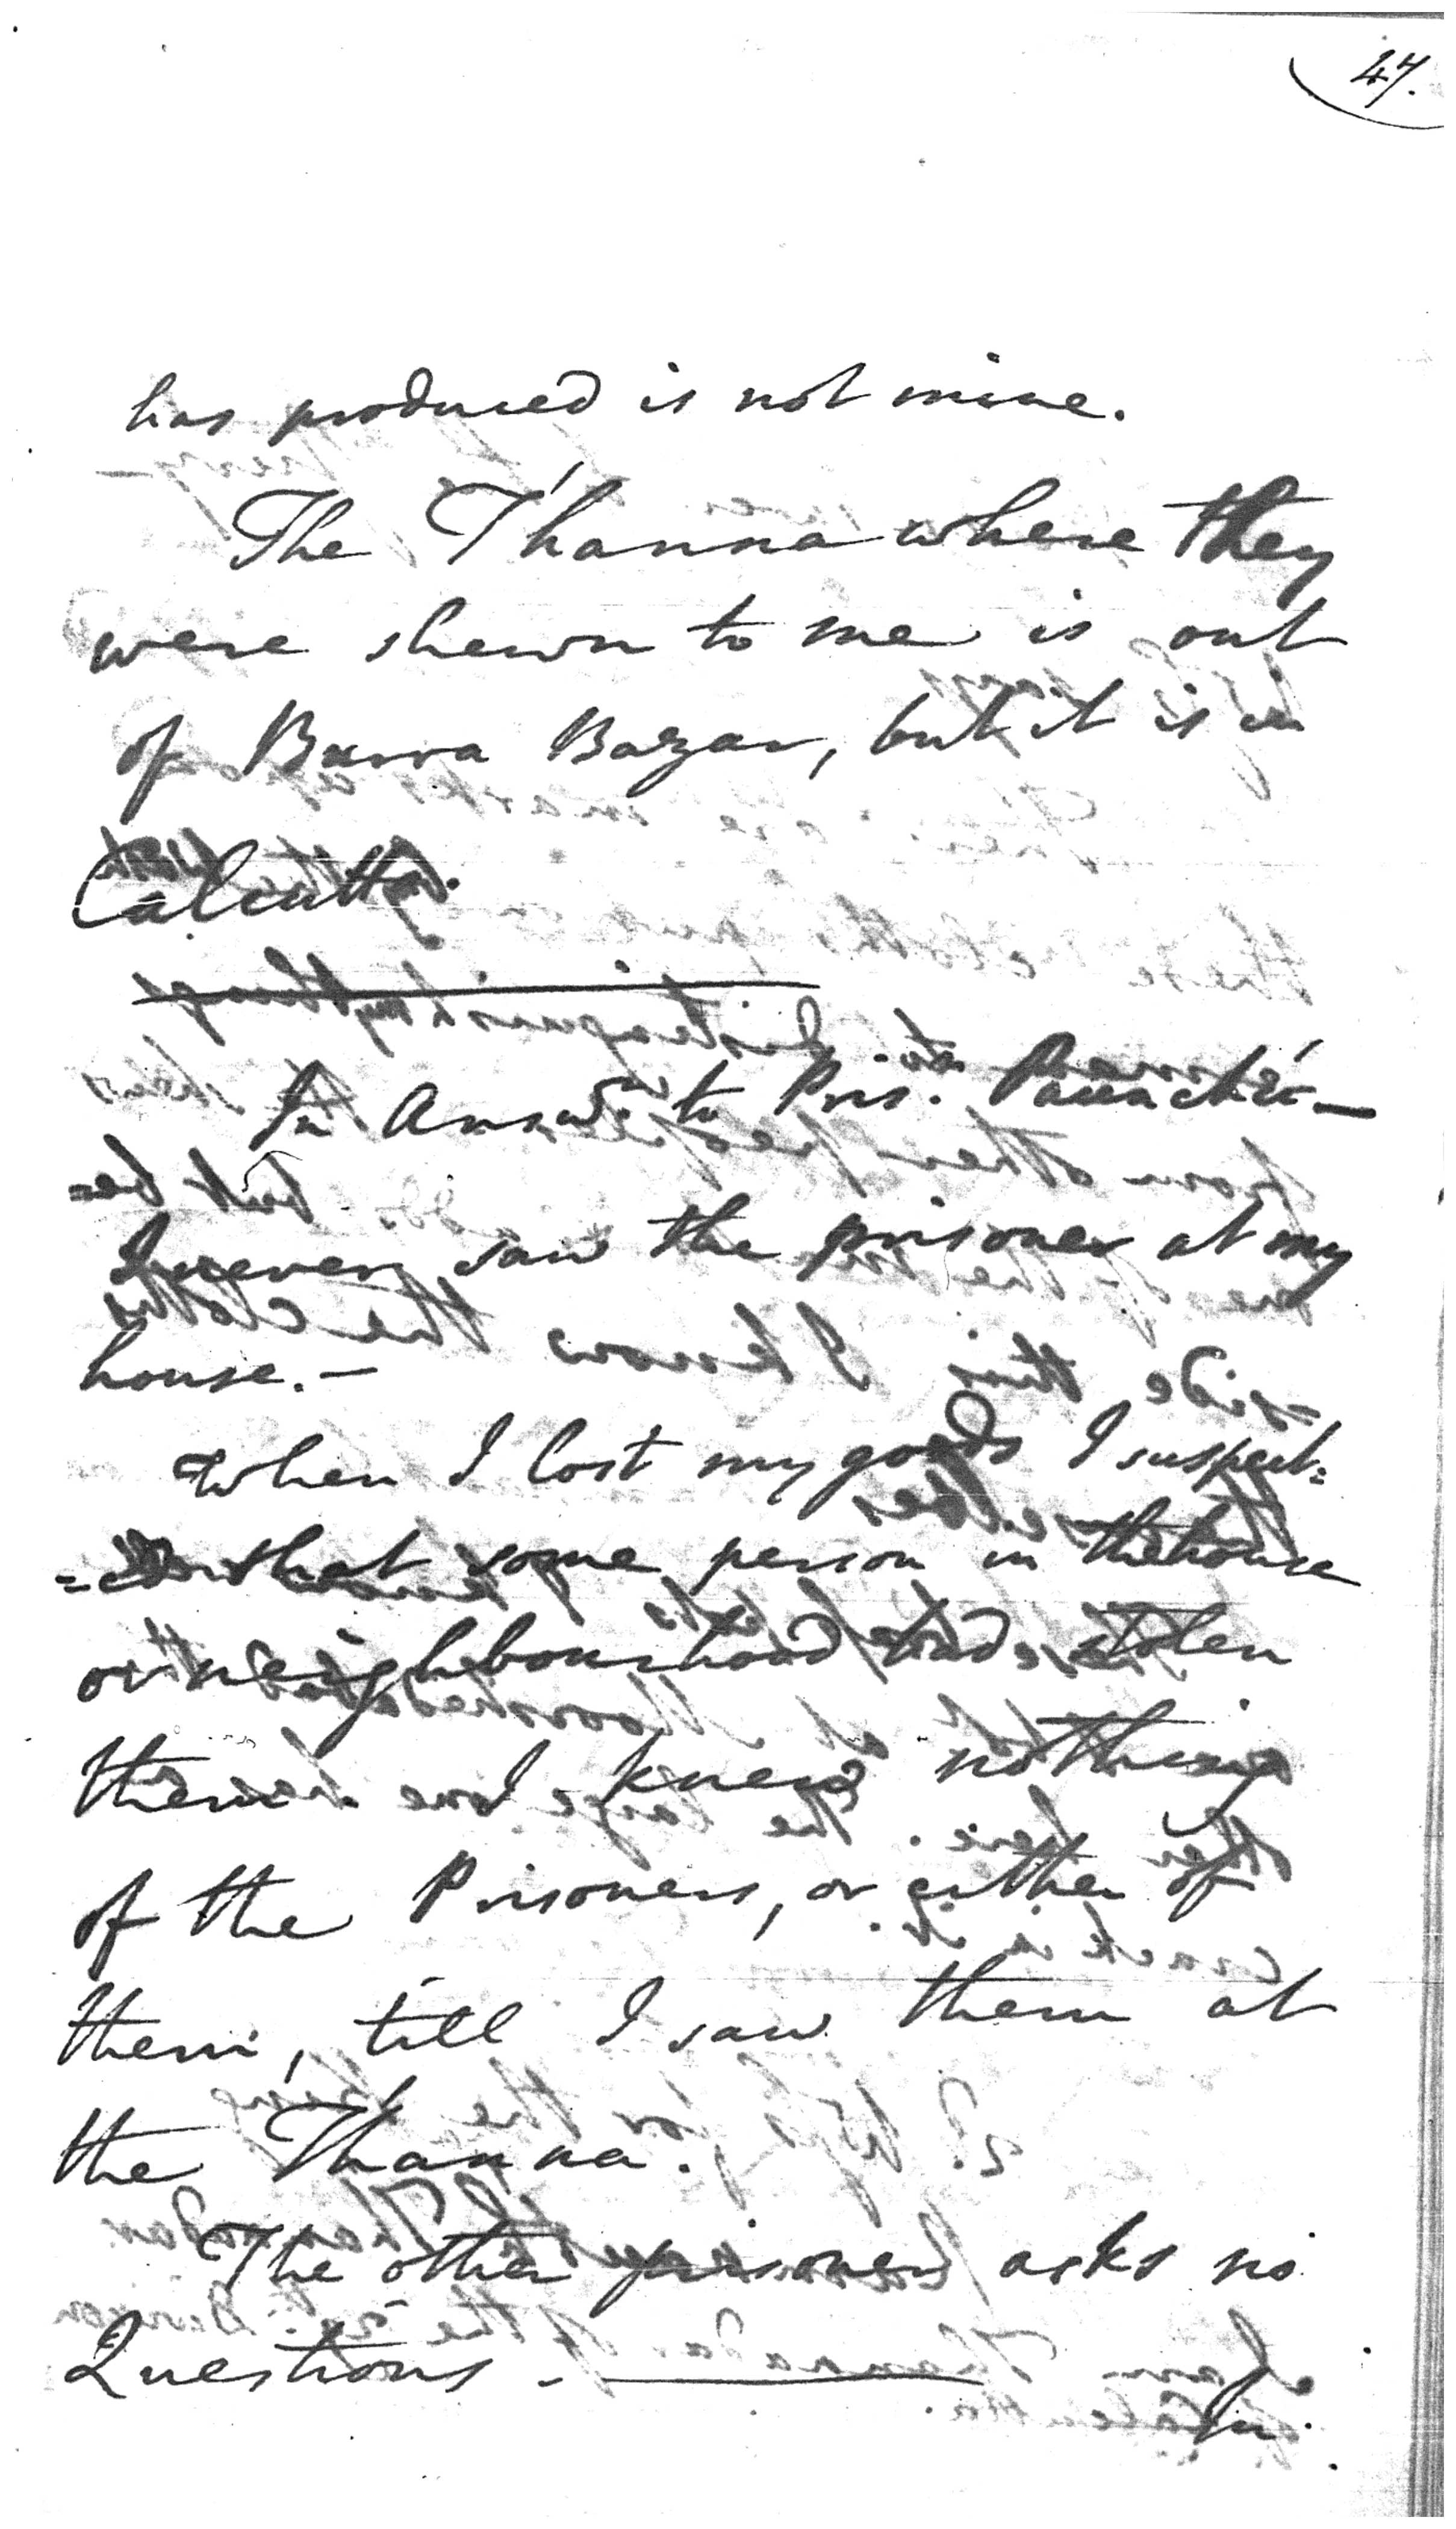 47.
has produced is not mine.
The T'hanna where they
were shewn to me is out
of Burra Bazar, but it is in
Calcutta.
In Answr. to Pris.
I never saw the prisoner at my
house. —
When I lost my goods I suspect=
=ed that some person in the house
or neighbourhood had stolen
them. I knew nothing
of the Prisoners, or either of
them, till I saw them at
the Thanna.
The other prisoner asks no
Questions. —
In